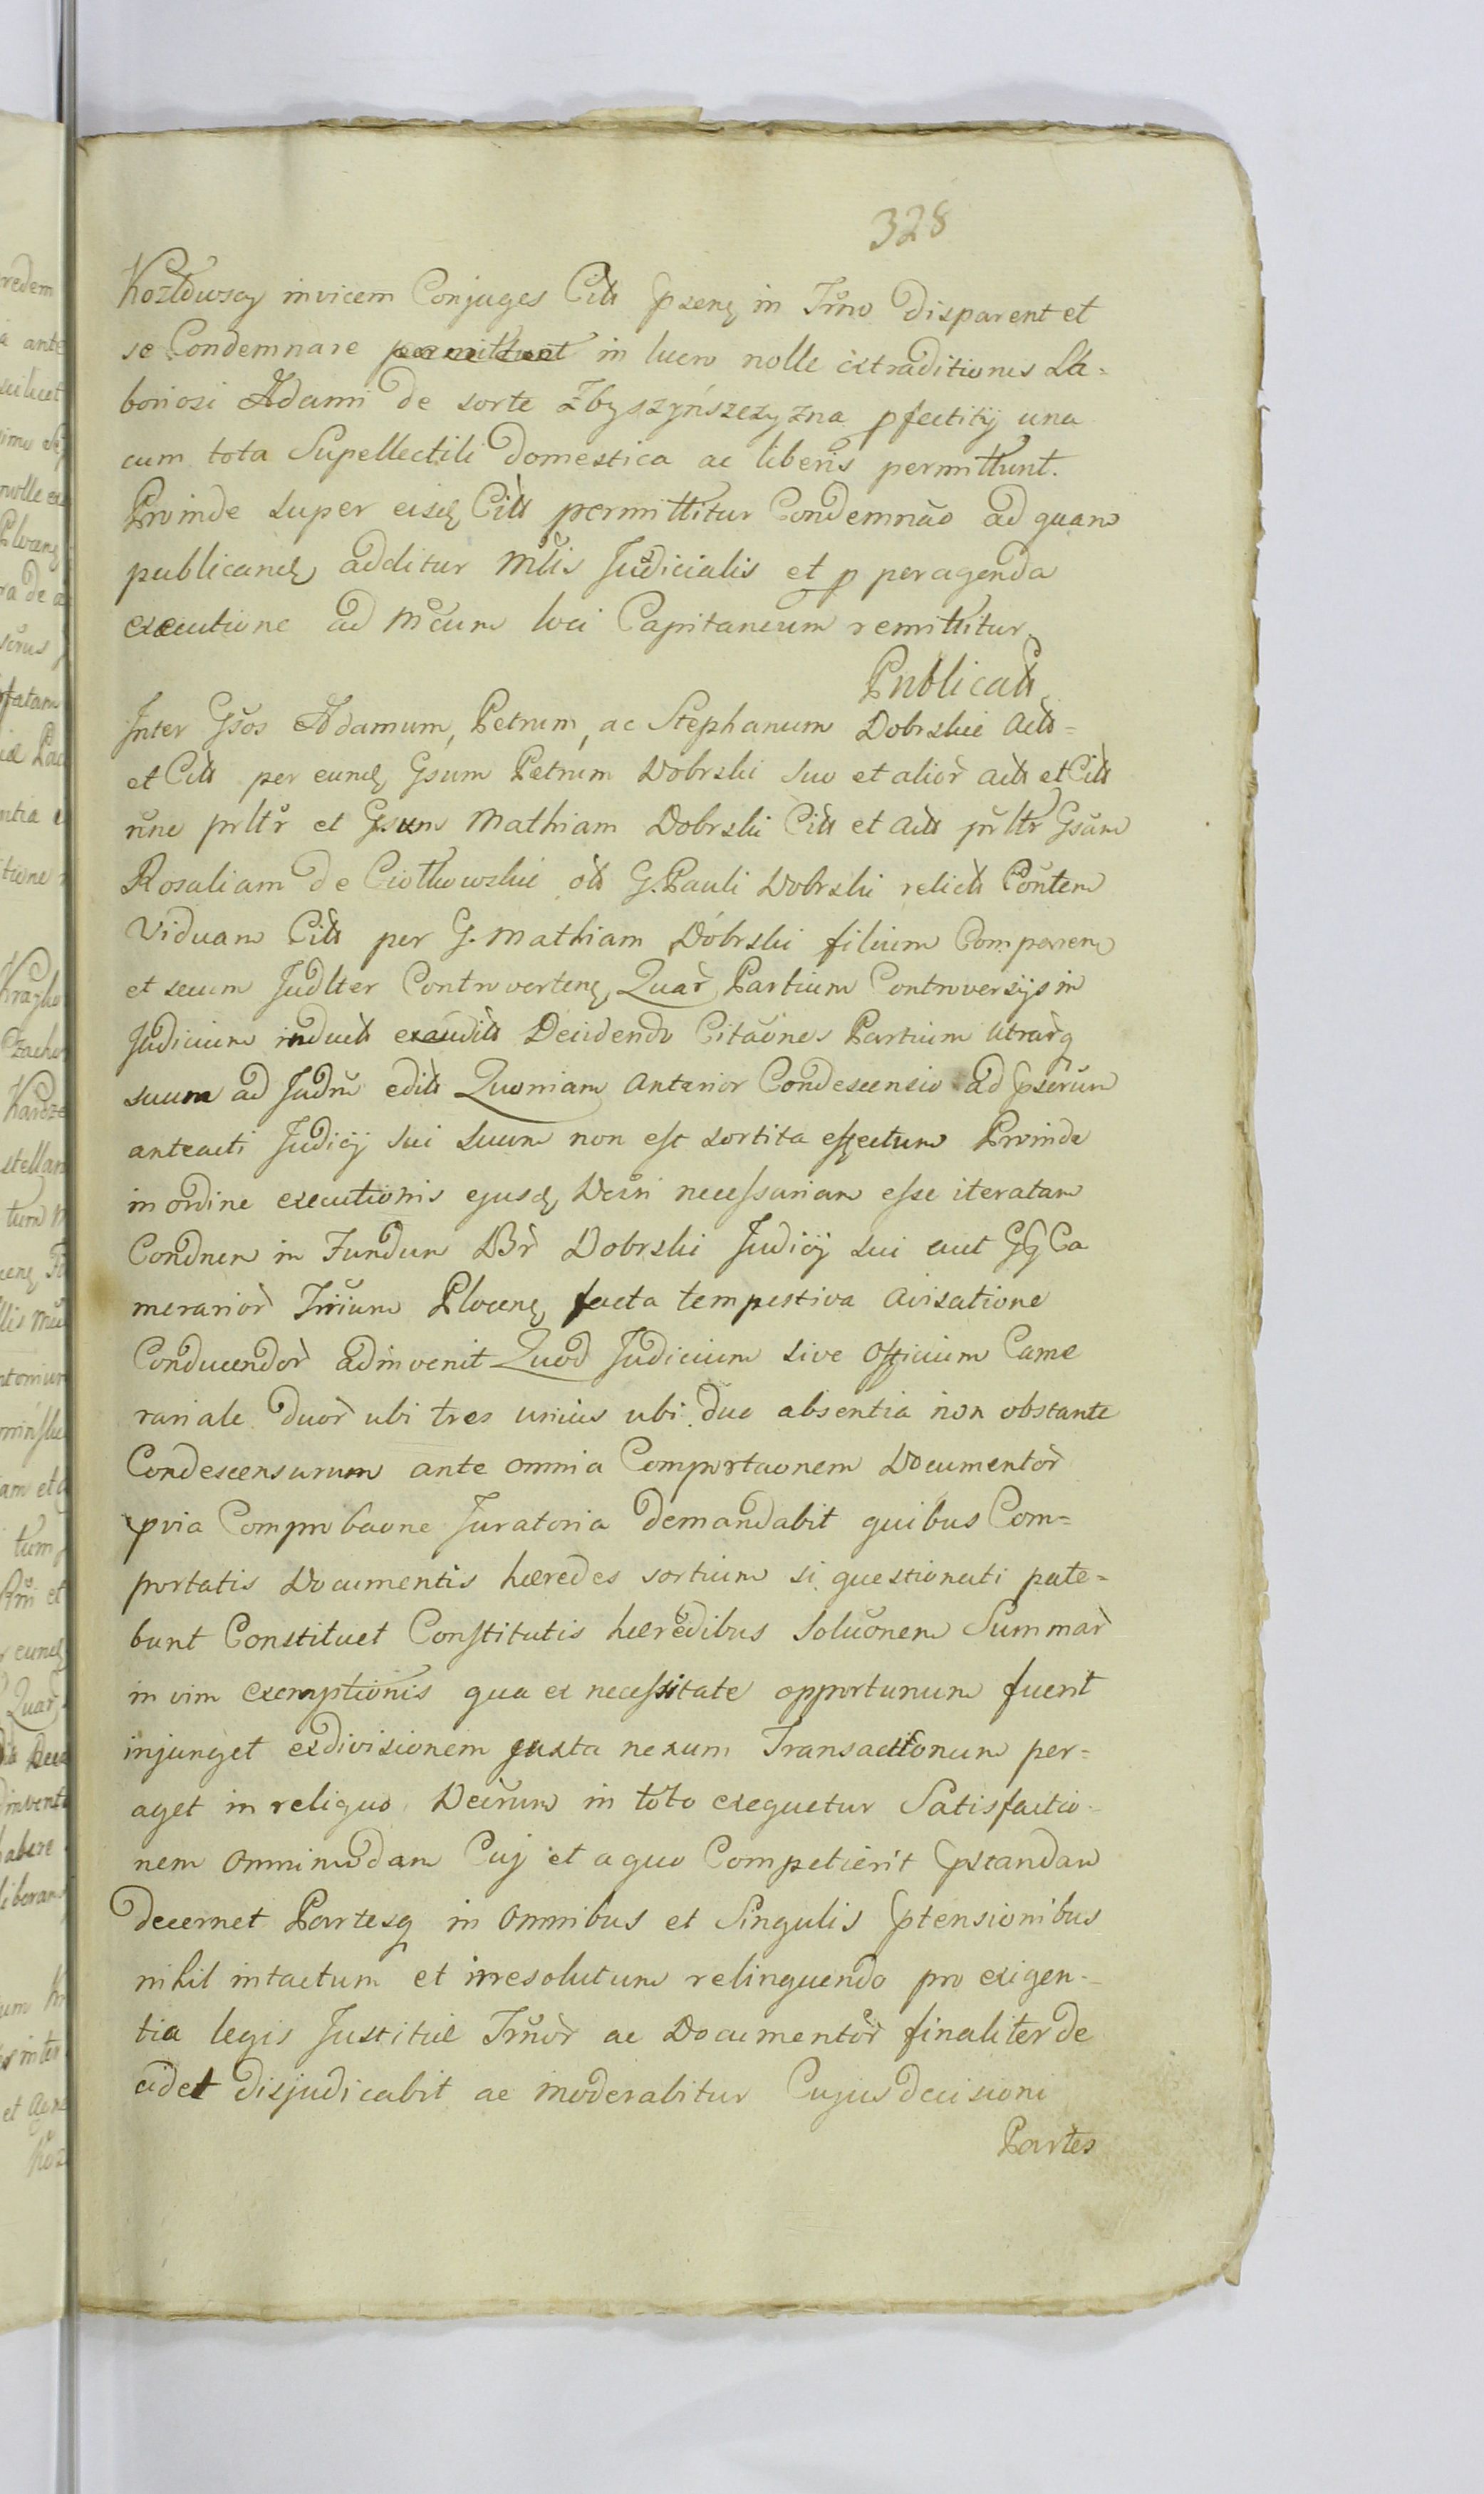 328
Kozłowscy invicem Conjuges Citti pseng in Trno disparent et
se Condemnare permittunt in lucro nolle extraditionis La-
boriosi Adami de sorte Zbyszyńszczyzna pfectitij una
cum tota Supellectili domestica ac liberis permittunt.
Proinde super eisd Citti permittitur Condemnāo ad quam
publicand additur Mlis Judicialis et p peragenda
executione ad Mcum loci Capitaneum remittitur
Publicatt
Inter Gsos Adamum, Petrum, ac Stephanum Dobrskie Actt-
et Citt per eund Gsum Petrum Dobrski suo et alior actt et Citt
nne prltr et Gsum Mathiam Dobrski Citt et actt prltr Gsam
Rosaliam de Ciotkowskie ott G. Pauli Dobrski relictt Contem
Viduam Citt per G. Mathiam Dobrski filium Comparen
et secum Judlter Controverteng Quar Partium Controversijs in
Judicium inductt exauditt Decidendo Citaones Partium Utrarq
suum ad Judm editt Quoniam anterior Condescensio ad pserum
anteacti Judicij sui suum non est sortita effectum Proinde
in ordine executionis ejusd Decri necessariam esse iteratam
Condnem in Fundum Br Dobrski Judicij sui aut GG Ca
merarior Trrium Plocens facta tempestiva avisatione
Conducendor adinvenit Quod Judicium sive Officium Came
rariale duor ubi tres unius ubi duo absentia non obstante
Condescensurum ante omnia Comportaonem Documentor
pvia Comprobaone Juratoria demandabit quibus Com=
portatis Documentis hæredes sortium si questionati pate=
bunt Constituet Constitutis hæredibus Soluonem Summar
in vim exemptionis qua ex necessitate opportunum fuerit
injunget exdivisionem juxta nexum Transactionum per=
aget in reliquo Decrum in toto exequetur Satisfactio-
nem omnimodam Cuj et a quo Competierit pstandam
decernet Partesq in omnibus et Singulis ptensionibus
nihil intactum et irresolutum relinquendo pro exigen-
tia legis Justitiæ Trnor ac Documentor finaliter de
cidet disjudicabit ac moderabitur Cujus decisioni
Partes